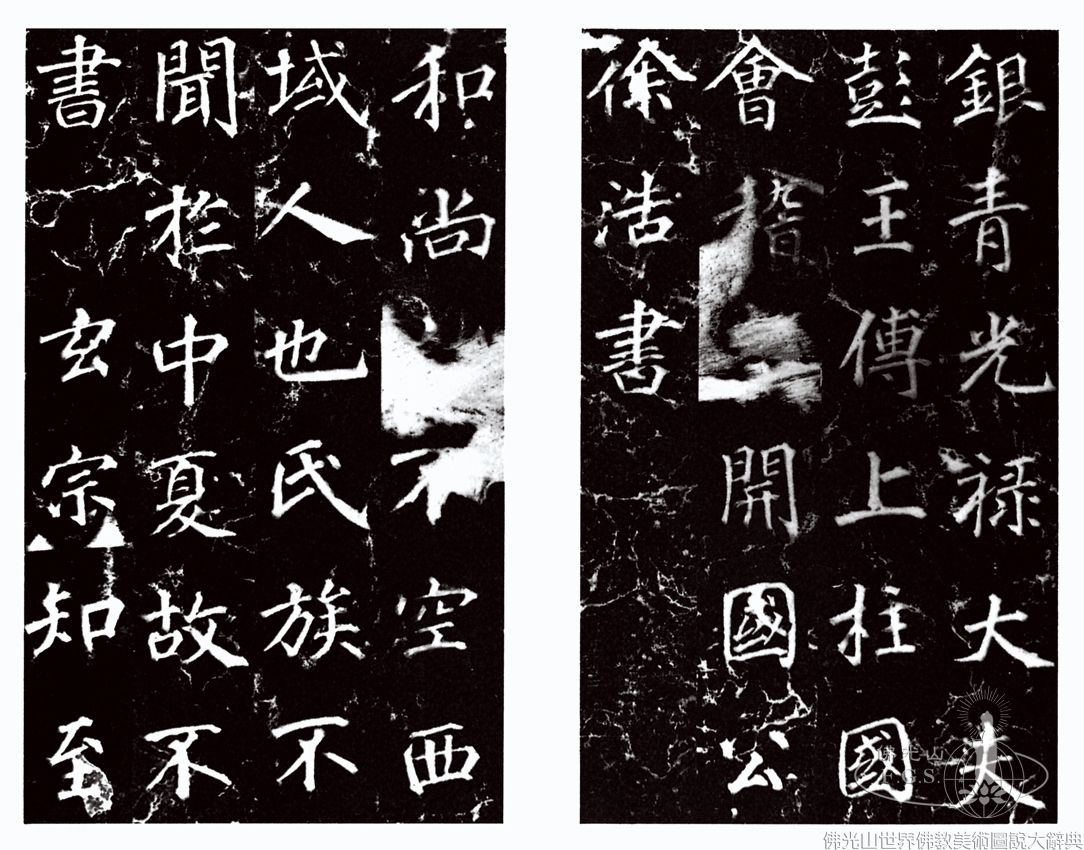 銀青光禄大夫
彭王傅上柱國
會稽開國公
徐浩書
和尚不空西
域人也氏族不
聞於中夏故不
書玄宗知至
佛光山
F.G.S.
佛光山世界佛教美術圖說大辭典